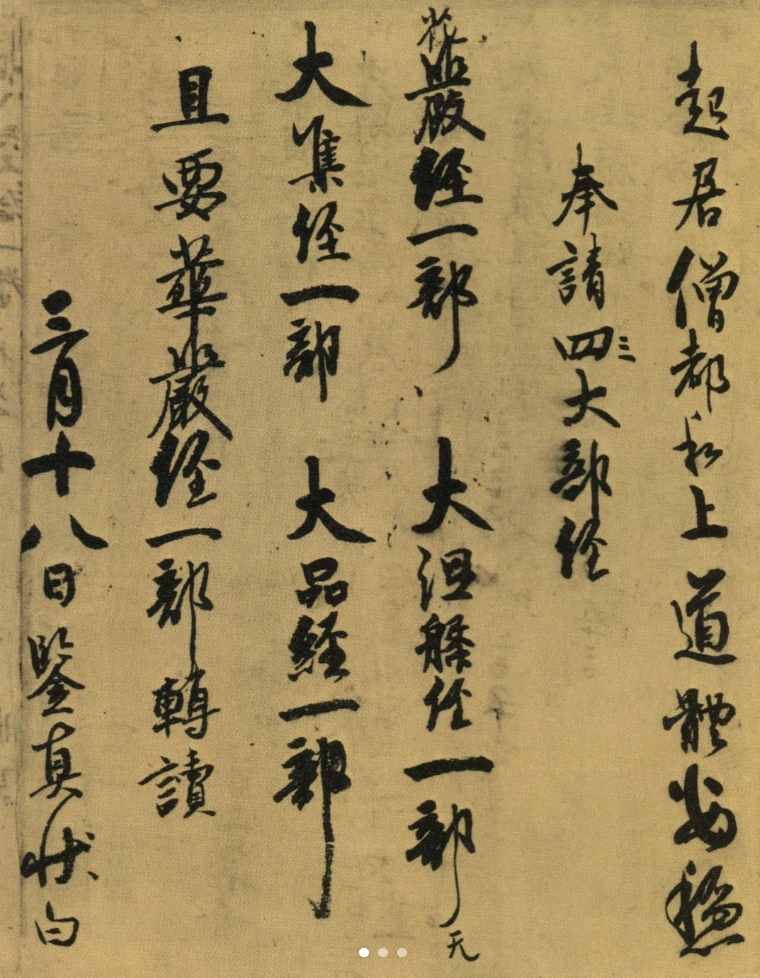 起居僧都和上道體安穩
奉請四三大部経
花嚴経一部 大涅槃経一部 无
大集経一部 大品経一部
且要華嚴経一部轉讀
三月十八日鑒真状白